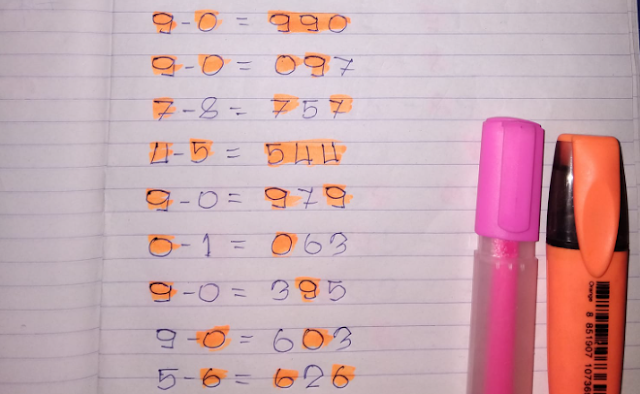 9-0 = 990
9-0 = 097
7-8 = 757
4-5 = 544
9-0 = 979
0-1 = 063
9-0 = 395
9-0 = 603
5-6 = 626
Orange
8 851907 10736